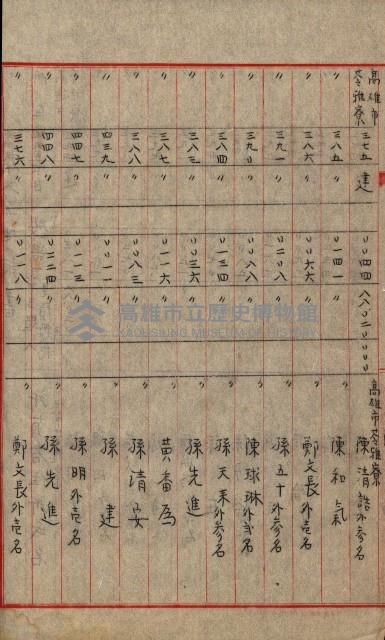 高雄市苓雅寮 三七五 建 〇〇四四 八八〇二〇〇〇〇 高雄市苓雅寮 陳清誥外参名
〃 三八五 〃 〇一四一 〃 〃 陳和氣
〃 三八六 〃 〇〇六六 〃 〃 鄭文長外壱名
〃 三九一 〃 〇二〇八 〃 〃 孫五十外参名
〃 三九〇 〃 〇〇八八 〃 〃 陳球琳外弍名
〃 三八四 〃 〇一三四 〃 〃 孫天来外参名
〃 三八三 〃 〇〇三六 〃 〃 孫先進
〃 三八七 〃 〇一一六 〃 〃 黄番為
〃 三八八 〃 〇一一二 〃 〃 孫清安
〃 四三九 〃 〇〇一一 〃 〃 孫建
〃 四四七 〃 〇一一三 〃 〃 孫明外壱名
〃 四四八 〃 〇二二四 〃 〃 孫先進
〃 三七六 〃 〇一一八 〃 〃 鄭文長外壱名
高雄市立歷史博物館
KAOHSIUNG MUSEUM OF HISTORY